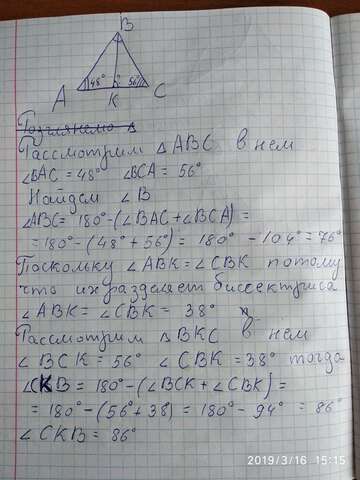 B
48°
56°
A
K
C
Розглянемо Δ
Рассмотрим Δ ABC в нем
∠BAC = 48° ∠BCA = 56°
Найдем ∠B
∠ABC = 180° - (∠BAC + ∠BCA) =
= 180° - (48° + 56°) = 180° - 104° = 76°
Поскольку ∠ABK = ∠CBK потому
что их разделяет биссектриса
∠ABK = ∠CBK = 38°
Рассмотрим Δ BKC в нем
∠BCK = 56° ∠CBK = 38° тогда
∠CKB = 180° - (∠BCK + ∠CBK) =
= 180° - (56° + 38°) = 180° - 94° = 86°
∠CKB = 86°
2019/3/16 15:15